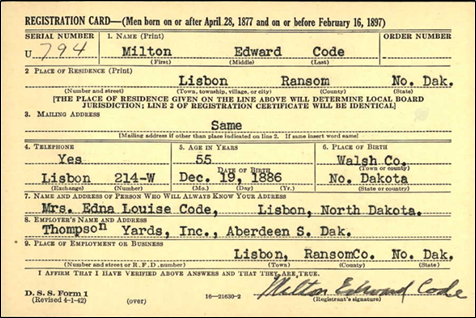 REGISTRATION CARD—(Men born on or after April 28, 1877 and on or before February 16, 1897)
SERIAL NUMBER 1. NAME (Print)
U 794 Milton Edward Code
(First) (Middle) (Last)
2 PLACE OF RESIDENCE (Print)
Lisbon Ransom No. Dak.
(Number and street) (Town, township, village, or city) (County) (State)
[THE PLACE OF RESIDENCE GIVEN ON THE LINE ABOVE WILL DETERMINE LOCAL BOARD
JURISDICTION; LINE 2 OF REGISTRATION CERTIFICATE WILL BE IDENTICAL]
3. MAILING ADDRESS
Same
[Mailing address if other than place indicated on line 2. If same insert word same]
4. TELEPHONE 5. AGE IN YEARS 6. PLACE OF BIRTH
Yes 55 Walsh Co.
DATE OF BIRTH (Town or county)
Lisbon 214-W Dec. 19, 1886 No. Dakota
(Exchange) (Number) (Mo.) (Day) (Yr.) (State or country)
7. NAME AND ADDRESS OF PERSON WHO WILL ALWAYS KNOW YOUR ADDRESS
Mrs. Edna Louise Code, Lisbon, North Dakota.
8. EMPLOYER'S NAME AND ADDRESS
Thompson Yards, Inc., Aberdeen S. Dak.
9. PLACE OF EMPLOYMENT OR BUSINESS
Lisbon, RansomCo. No. Dak.
(Number and street or R. F. D. number) (Town) (County) (State)
I AFFIRM THAT I HAVE VERIFIED ABOVE ANSWERS AND THAT THEY ARE TRUE.
D. S. S. Form 1
(Revised 4-1-42) (over) 16—21630-2 Milton Edward Code
(Registrant's signature)